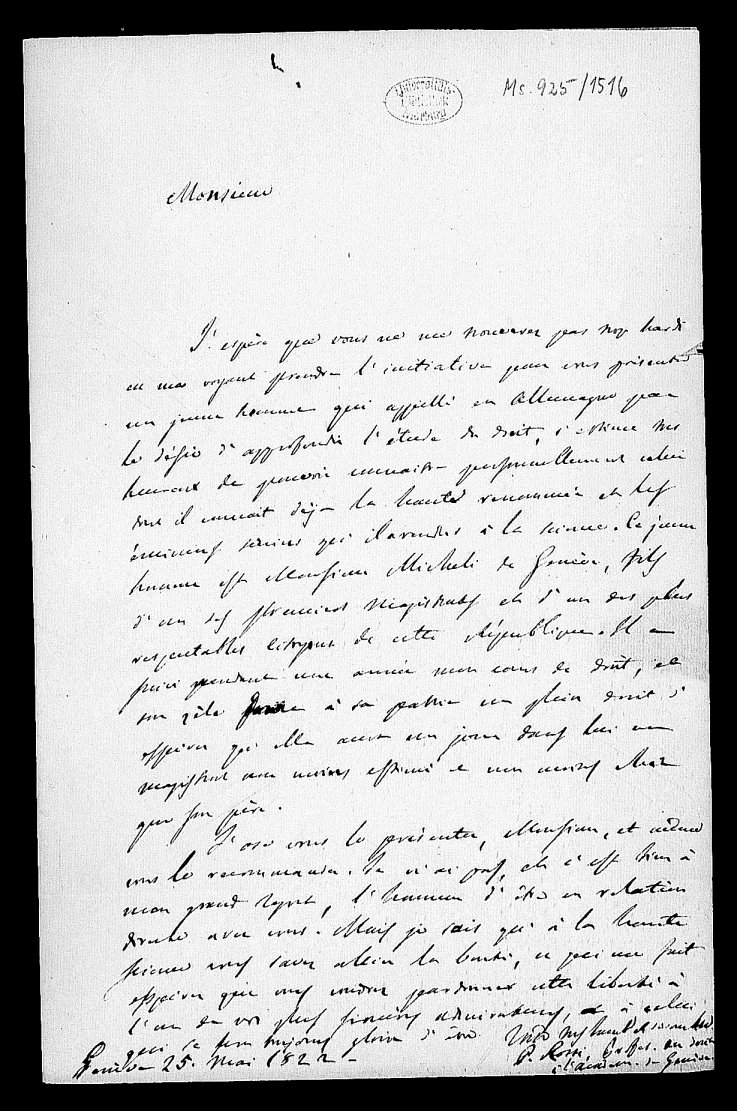 Ms. 925/1516
Universitäts
Bibliothek
Marburg
Monsieur
J'espère que vous ne me trouverez pas trop hardi
en me voyant prendre l'initiative pour vous présenter
un jeune homme qui appellé en Allemagne par
le désir d'approfondir l'étude du droit, s'estime très
heureux de pouvoir connaitre personnellement celui
dont il connait déjà la haute renommée et les
éminens services qu'il a rendus à la science. Ce jeune
homme est Monsieur Micheli de Genève, fils
d'un des premiers magistrats et d'un des plus
respectables citoyens de cette République. Il a
suivi pendant une année mon cours de droit, et
son zèle donne à sa patrie un plein droit d'
espérer qu'elle aura un jour dans lui un
magistrat non moins estimé et non moins cher
que son père.
J'ose vous le présenter, Monsieur, et même
vous le recommander. Je n'ai pas, et c'est bien à
mon grand regret, l'honneur d'être en relation
directe avec vous. Mais je sais qu'à la haute
science vous savez allier la bonté, ce qui me fait
espérer que vous voudrez pardonner cette liberté à
l'un de vos plus sincères admirateurs, et à celui
qui se fera toujours gloire d'être Votre
Genève 25. Mai 1822 -
P. Rossi, Profes. en droit
à l'académie de Genève